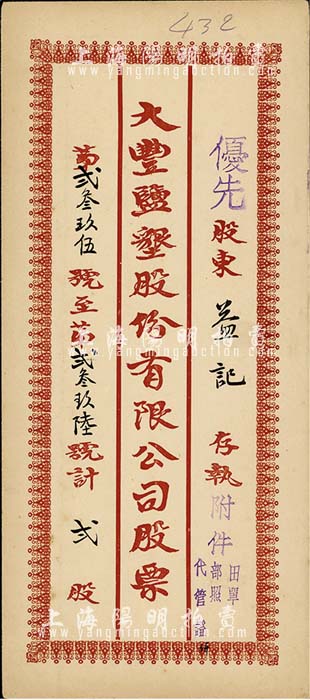 432
上海陽明拍賣
www.yangmingauction.com
優先股東 益記 存執 附件 田單 部照 代管證
大豐鹽墾股份有限公司股票
第弍叁玖伍號至第弍叁玖陸號計 弍 股
上海陽明拍賣
www.yangmingauction.com
上海陽明拍賣
www.yangmingauction.com